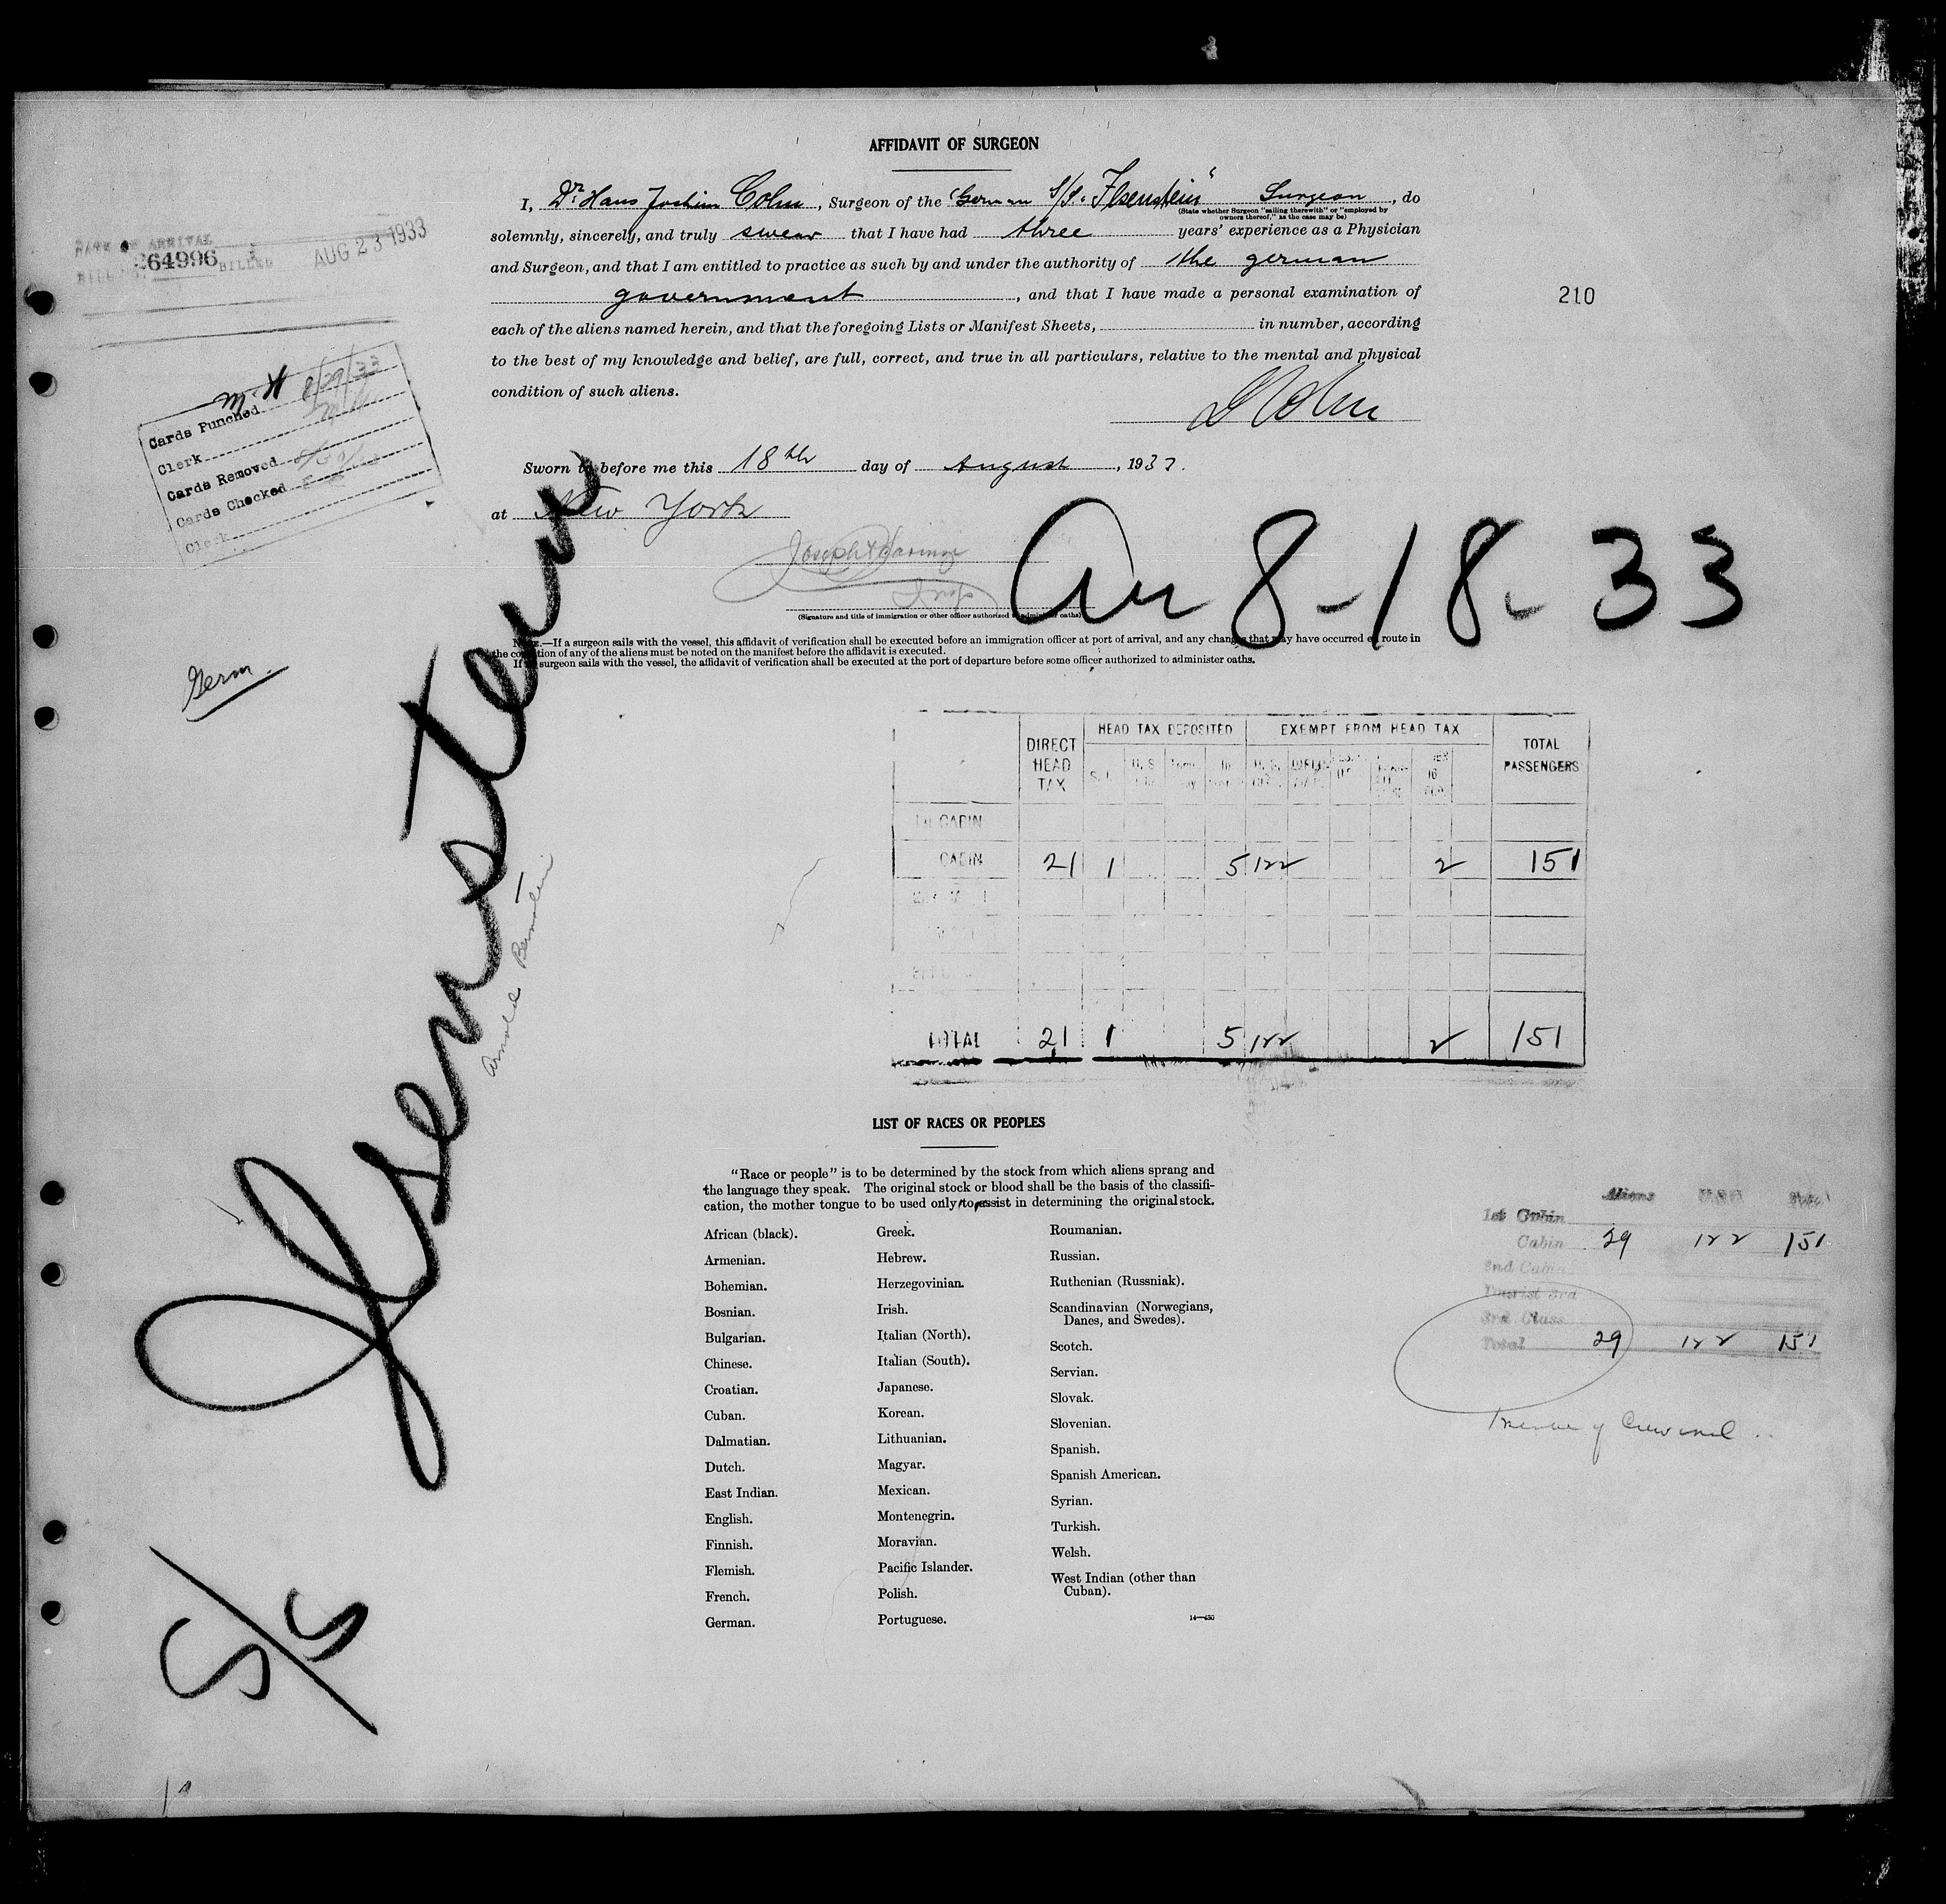 AFFIDAVIT OF SURGEON
I, Dr. Hans Joachim Cohn, Surgeon of the "German S/S. Ilsenstein" Surgeon, do
(State whether Surgeon "sailing therewith" or "employed by
owners thereof," as the case may be)
solemnly, sincerely, and truly swear that I have had three years' experience as a Physician
and Surgeon, and that I am entitled to practice as such by and under the authority of the german
government, and that I have made a personal examination of
each of the aliens named herein, and that the foregoing Lists or Manifest Sheets, in number, according
to the best of my knowledge and belief, are full, correct, and true in all particulars, relative to the mental and physical
condition of such aliens.
Cohn
Sworn to before me this 18th day of August, 1933.
at New York
Joseph
(Signature and title of immigration or other officer authorized to administer oaths)
NOTE.—If a surgeon sails with the vessel, this affidavit of verification shall be executed before an immigration officer at port of arrival, and any changes that may have occurred en route in
the condition of any of the aliens must be noted on the manifest before the affidavit is executed.
If surgeon sails with the vessel, the affidavit of verification shall be executed at the port of departure before some officer authorized to administer oaths.
DATE OF ARRIVAL
64996 BILLED AUG 23 1933
210
M.H 8/29/33
Cards Punched
Clerk
Cards Removed
Cards Checked
Clerk
Germ.
Arr 8-18-33
S/S Ilsenstein
Arnold Bernstein
DIRECT HEAD TAX
HEAD TAX DEPOSITED
EXEMPT FROM HEAD TAX
TOTAL PASSENGERS
1st CABIN
CABIN 21 1 5 122 2 151
TOTAL 21 1 5 122 2 151
LIST OF RACES OR PEOPLES
"Race or people" is to be determined by the stock from which aliens sprang and
the language they speak. The original stock or blood shall be the basis of the classifi-
cation, the mother tongue to be used only to assist in determining the original stock.
African (black).
Armenian.
Bohemian.
Bosnian.
Bulgarian.
Chinese.
Croatian.
Cuban.
Dalmatian.
Dutch.
East Indian.
English.
Finnish.
Flemish.
French.
German.
Greek.
Hebrew.
Herzegovinian.
Irish.
Italian (North).
Italian (South).
Japanese.
Korean.
Lithuanian.
Magyar.
Mexican.
Montenegrin.
Moravian.
Pacific Islander.
Polish.
Portuguese.
Roumanian.
Russian.
Ruthenian (Russniak).
Scandinavian (Norwegians,
Danes, and Swedes).
Scotch.
Servian.
Slovak.
Slovenian.
Spanish.
Spanish American.
Syrian.
Turkish.
Welsh.
West Indian (other than
Cuban).
14—430
Aliens USC Total
1st Cabin
Cabin 29 122 151
2nd Cabin
Tourist 3rd
3rd Class
Total 29 122 151